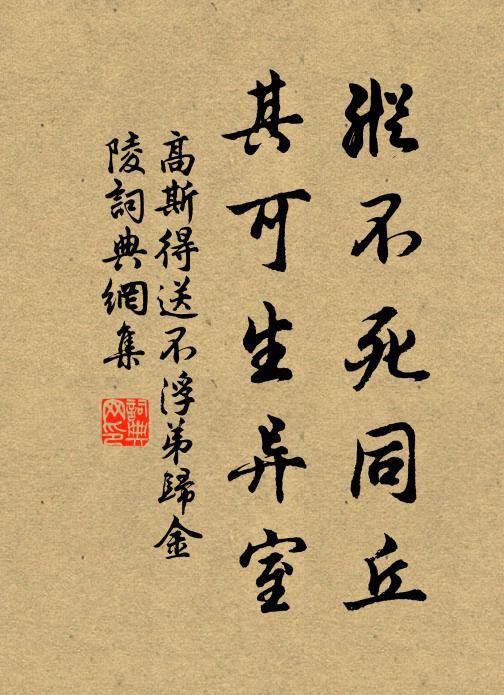 縱不死同丘
其可生异室
高斯得送不浮弟歸金
陵詞典網集
詞典网印